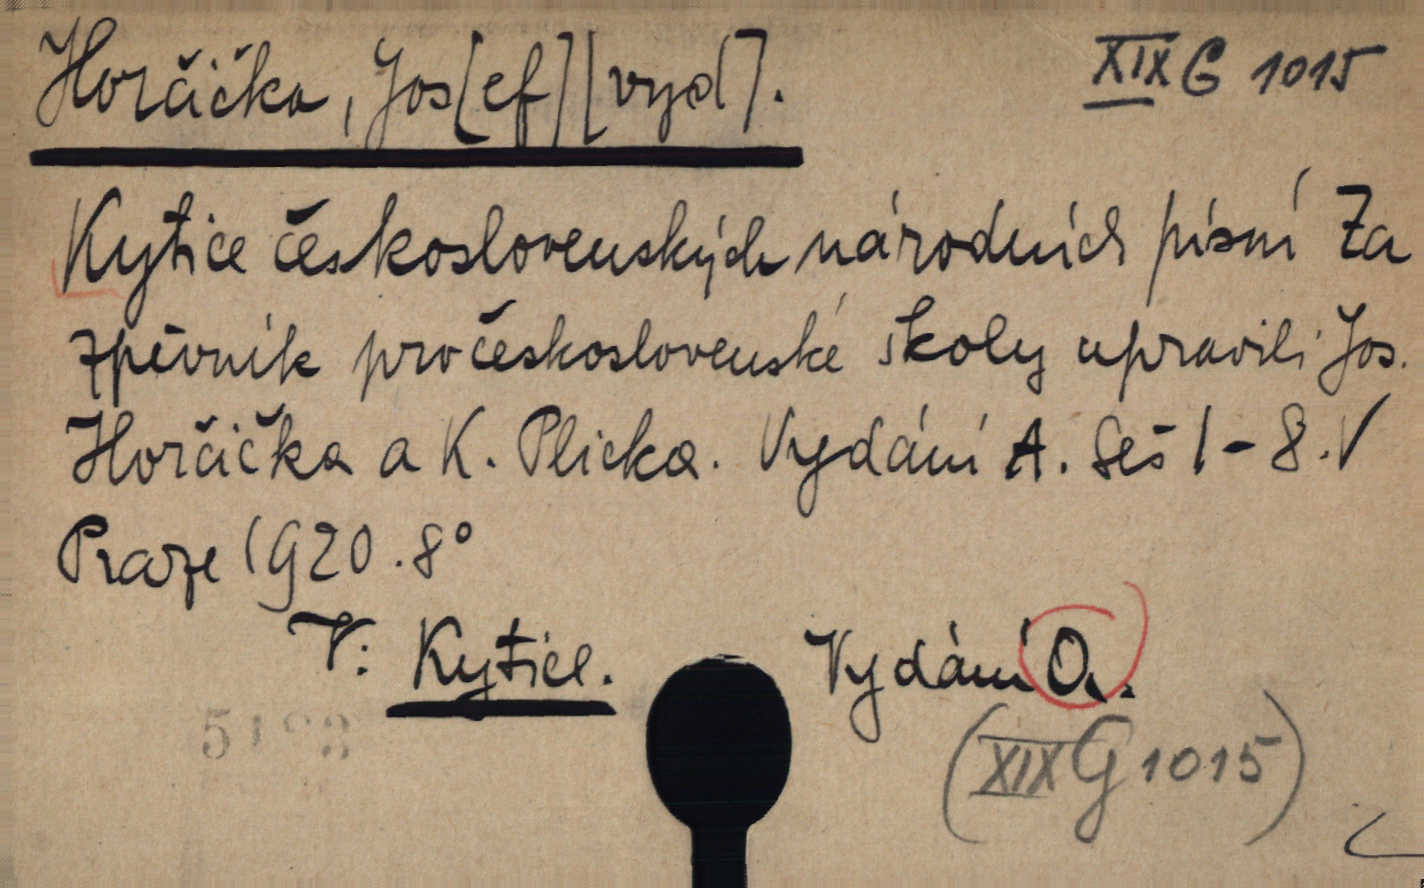 Horčička, Jos[ef] [vyd].
XIX G 1015
Kytice československých národních písní Za
zpěvník pročeskoslovenské školy upravili Jos.
Horčička a K. Plicka. Vydání A. Seš 1-8. V
Praze 1920. 8°
V: Kytice.
Vydání O.
(XIX G 1015)